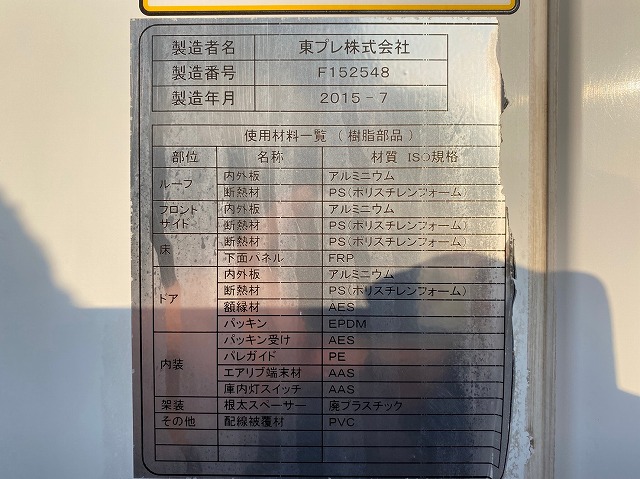 製造者名 東プレ株式会社
製造番号 F152548
製造年月 2015-7
使用材料一覧 （樹脂部品）
部位 名称 材質 ISO規格
ルーフ 内外板 アルミニウム
断熱材 PS(ポリスチレンフォーム)
フロント サイド 内外板 アルミニウム
断熱材 PS(ポリスチレンフォーム)
床 断熱材 PS(ポリスチレンフォーム)
下面パネル FRP
ドア 内外板 アルミニウム
断熱材 PS(ポリスチレンフォーム)
額縁材 AES
パッキン EPDM
内装 パッキン受け AES
パレガイド PE
エアリブ端末材 AAS
庫内灯スイッチ AAS
架装 根太スペーサー 廃プラスチック
その他 配線被覆材 PVC